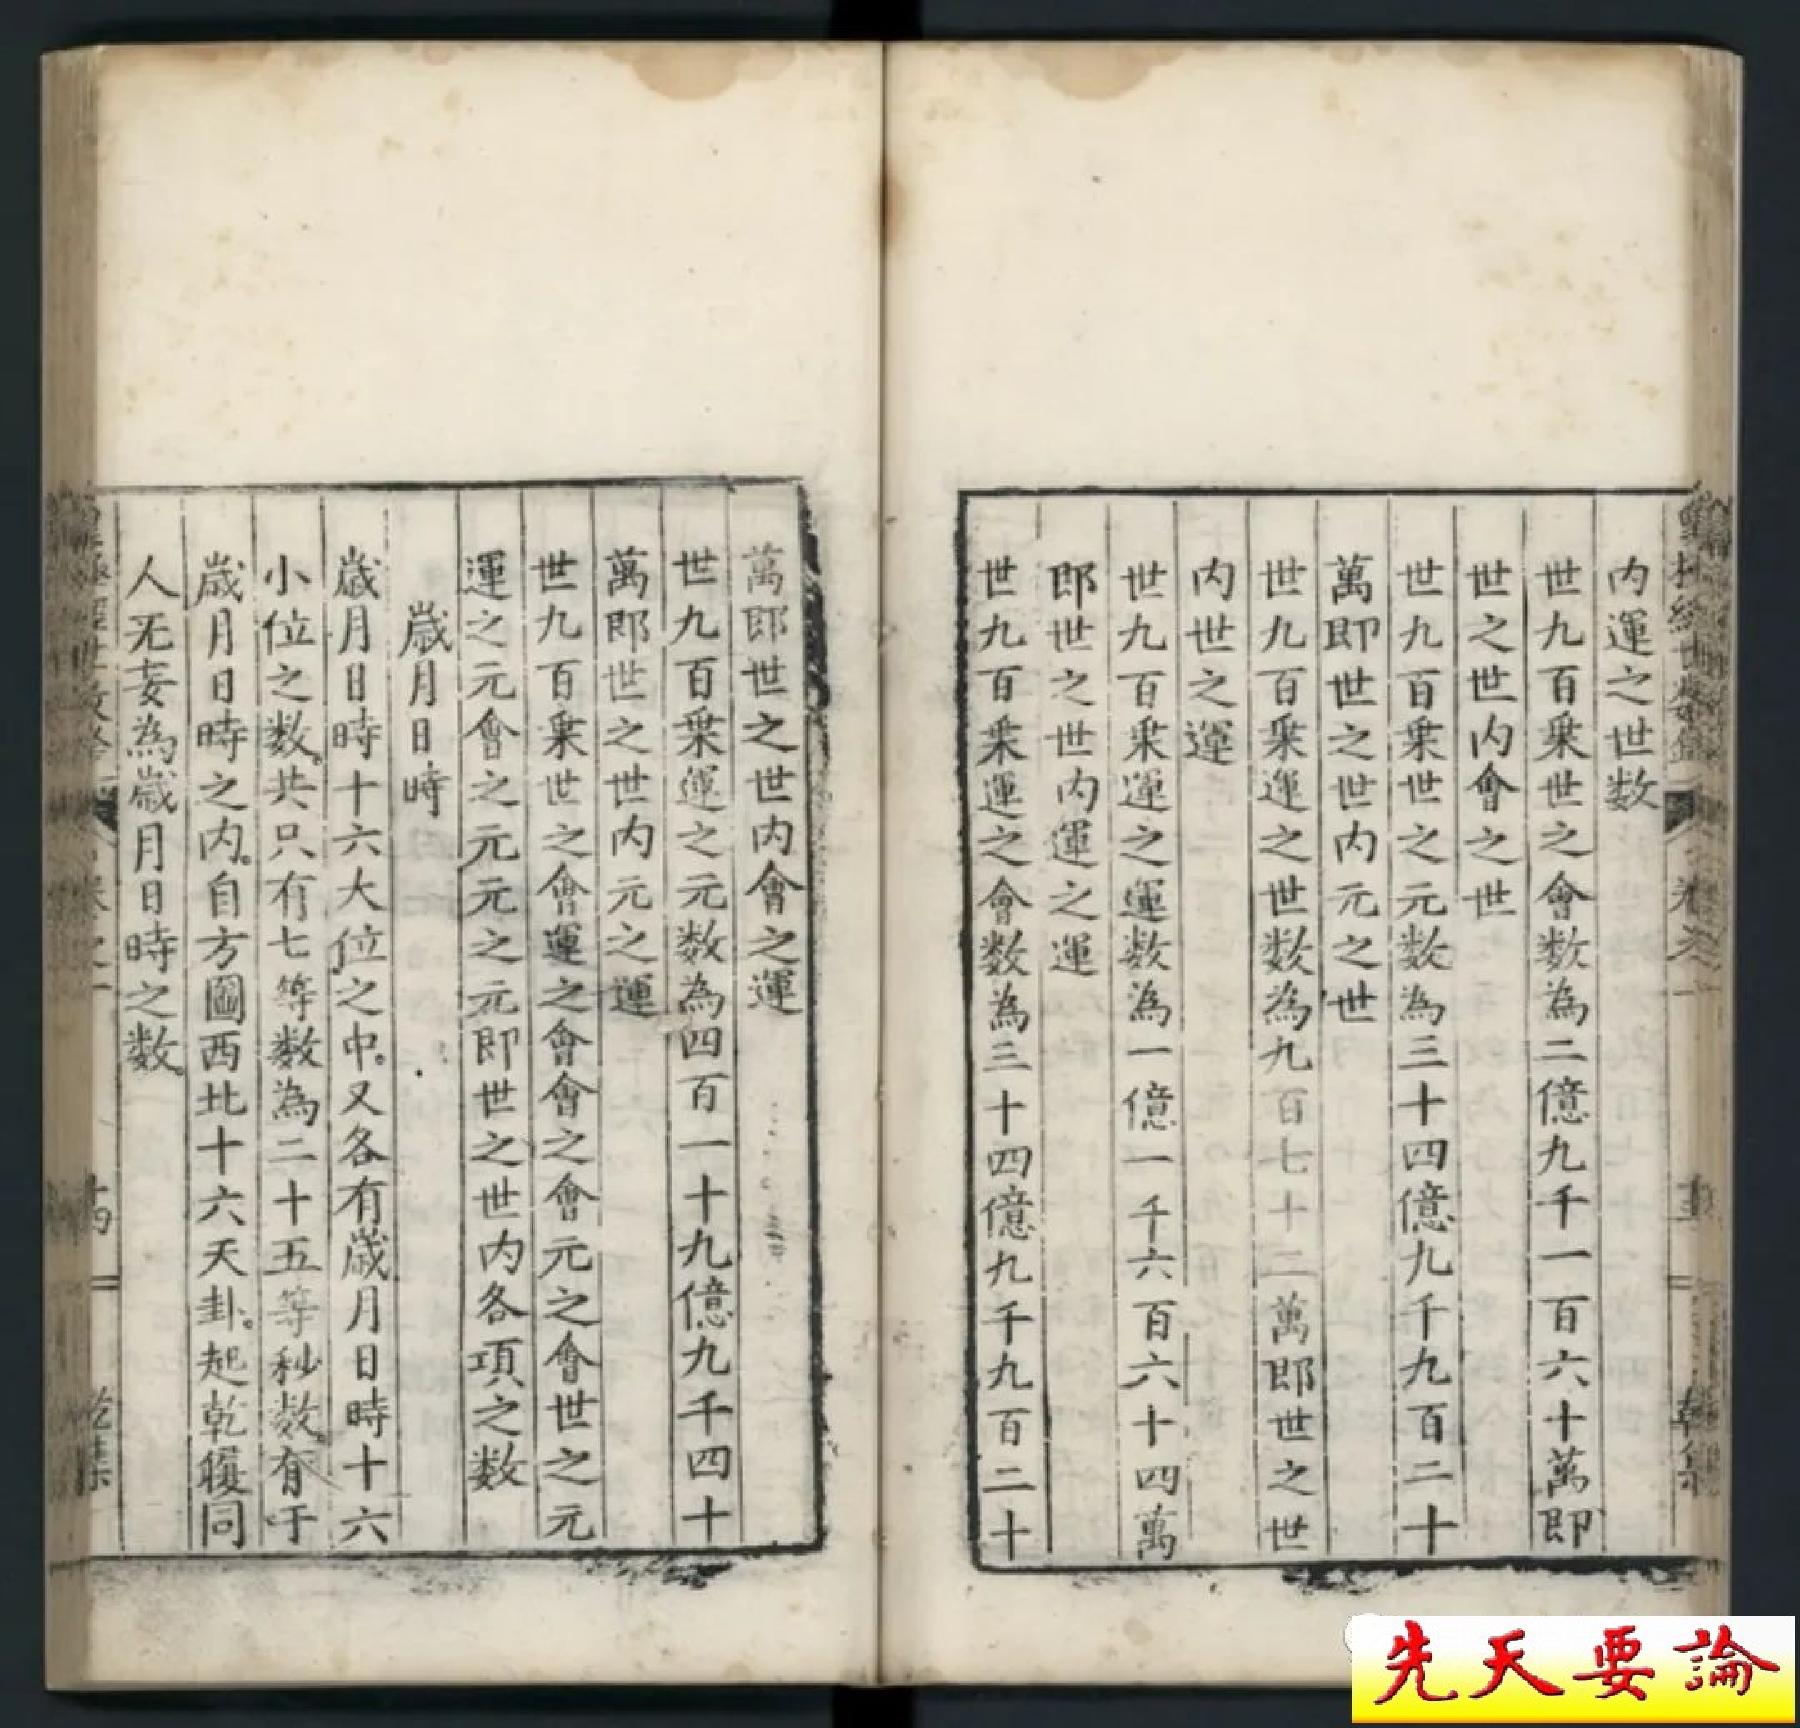 内運之世数
世九百乗世之會数為二億九千一百六十萬即
世之世内會之世
世九百乗世之元数為三十四億九千九百二十
萬即世之世内元之世
世九百乗運之世数為九百七十二萬即世之世
内世之運
世九百乗運之運数為一億一千六百六十四萬
即世之世内運之運
世九百乗運之會数為三十四億九千九百二十
萬即世之世内會之運
世九百乗運之元数為四百一十九億九千四十
萬即世之世内元之運
世九百乗世之會運之會會之會元之會世之元
運之元會之元元之元即世之世内各項之数
歳月日時
歳月日時十六大位之中。又各有歳月日時十六
小位之数。共只有七等数為二十五等秒数。育于
歳月日時之内。自方圖西北十六天卦。起乾履同
人无妄為歳月日時之数
十四
乾集
先天要論